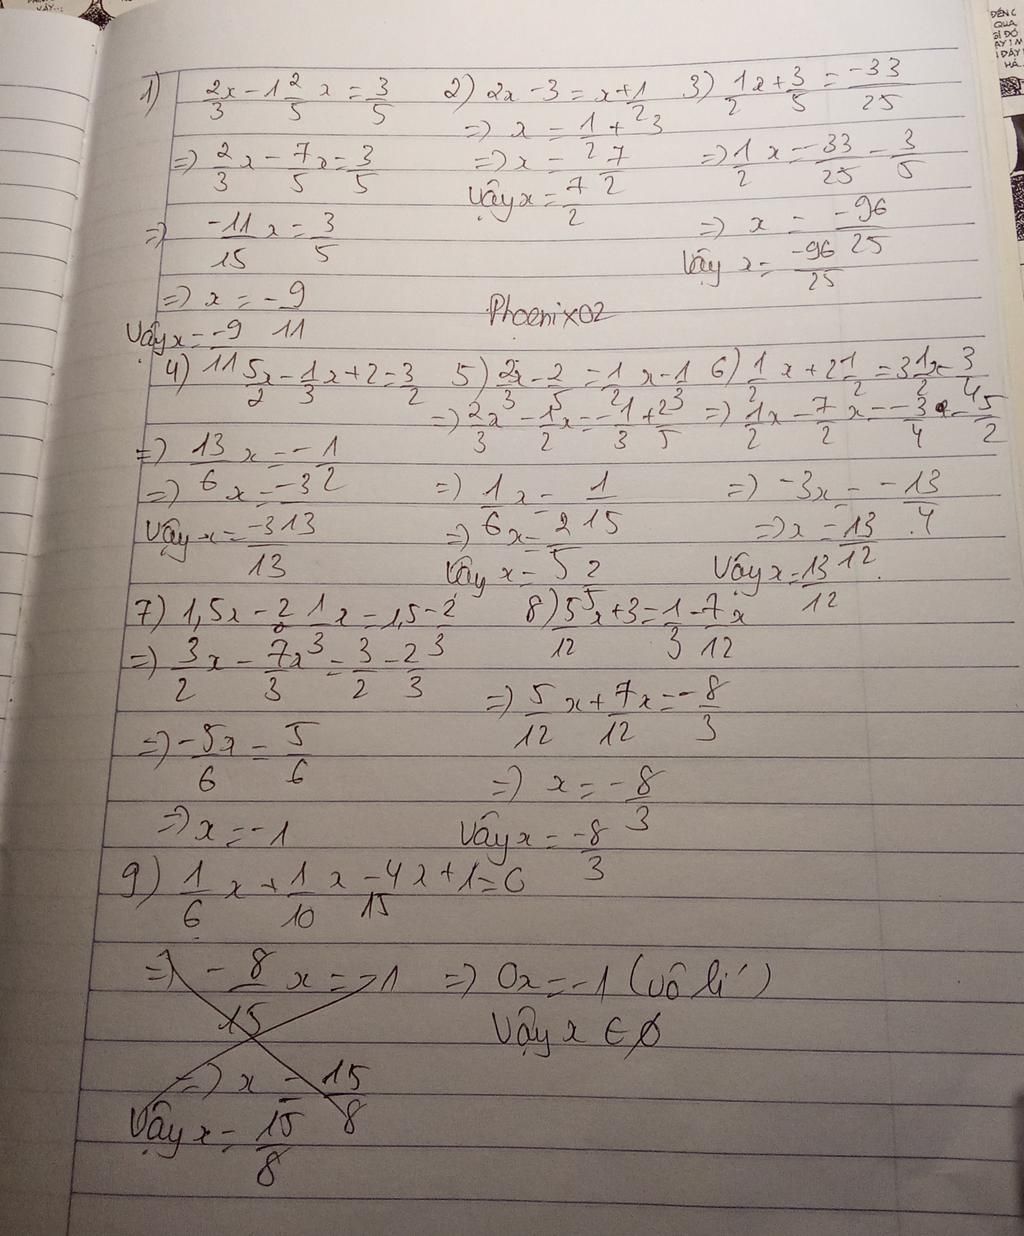 1) 2x/3 - 1 2/5 x = 3/5
=> 2/3 x - 7/5 x = 3/5
=> -11/15 x = 3/5
=> x = -9/11
Vậy x = -9/11
2) 2x - 3 = x + 1/2
=> x = 1/2 + 3
=> x = 7/2
Vậy x = 7/2
3) 1/2 x + 3/5 = -33/25
=> 1/2 x = -33/25 - 3/5
=> x = -96/25
Vậy x = -96/25
Phoenix02
4) 5x/2 - 1/3 x + 2 = 3/2
=> 13/6 x = -1/2
=> x = -3/13
Vậy x = -3/13
5) 2x/3 - 2/5 = 1/2 x - 1/3
=> 2x/3 - 1/2 x = -1/3 + 2/5
=> 1/6 x = 1/15
=> x = 2/5
Vậy x = 2/5
6) 1/2 x + 2 1/2 = 3 1/2 x - 3/4
=> 1/2 x - 7/2 x = -3/4 - 5/2
=> -3x = -13/4
=> x = 13/12
Vậy x = 13/12
7) 1,5x - 2 1/3 x = 1,5 - 2/3
=> 3/2 x - 7/3 x = 3/2 - 2/3
=> -5x/6 = 5/6
=> x = -1
8) 5/12 x + 3 = 1/3 - 7/12 x
=> 5/12 x + 7/12 x = -8/3
=> x = -8/3
Vậy x = -8/3
9) 1/6 x + 1/10 x - 4/15 x + 1 = 0
=> -8/15 x = -1
=> x = 15/8
Vậy x = 15/8
=> 0x = -1 (vô lí)
Vậy x ∈ ∅